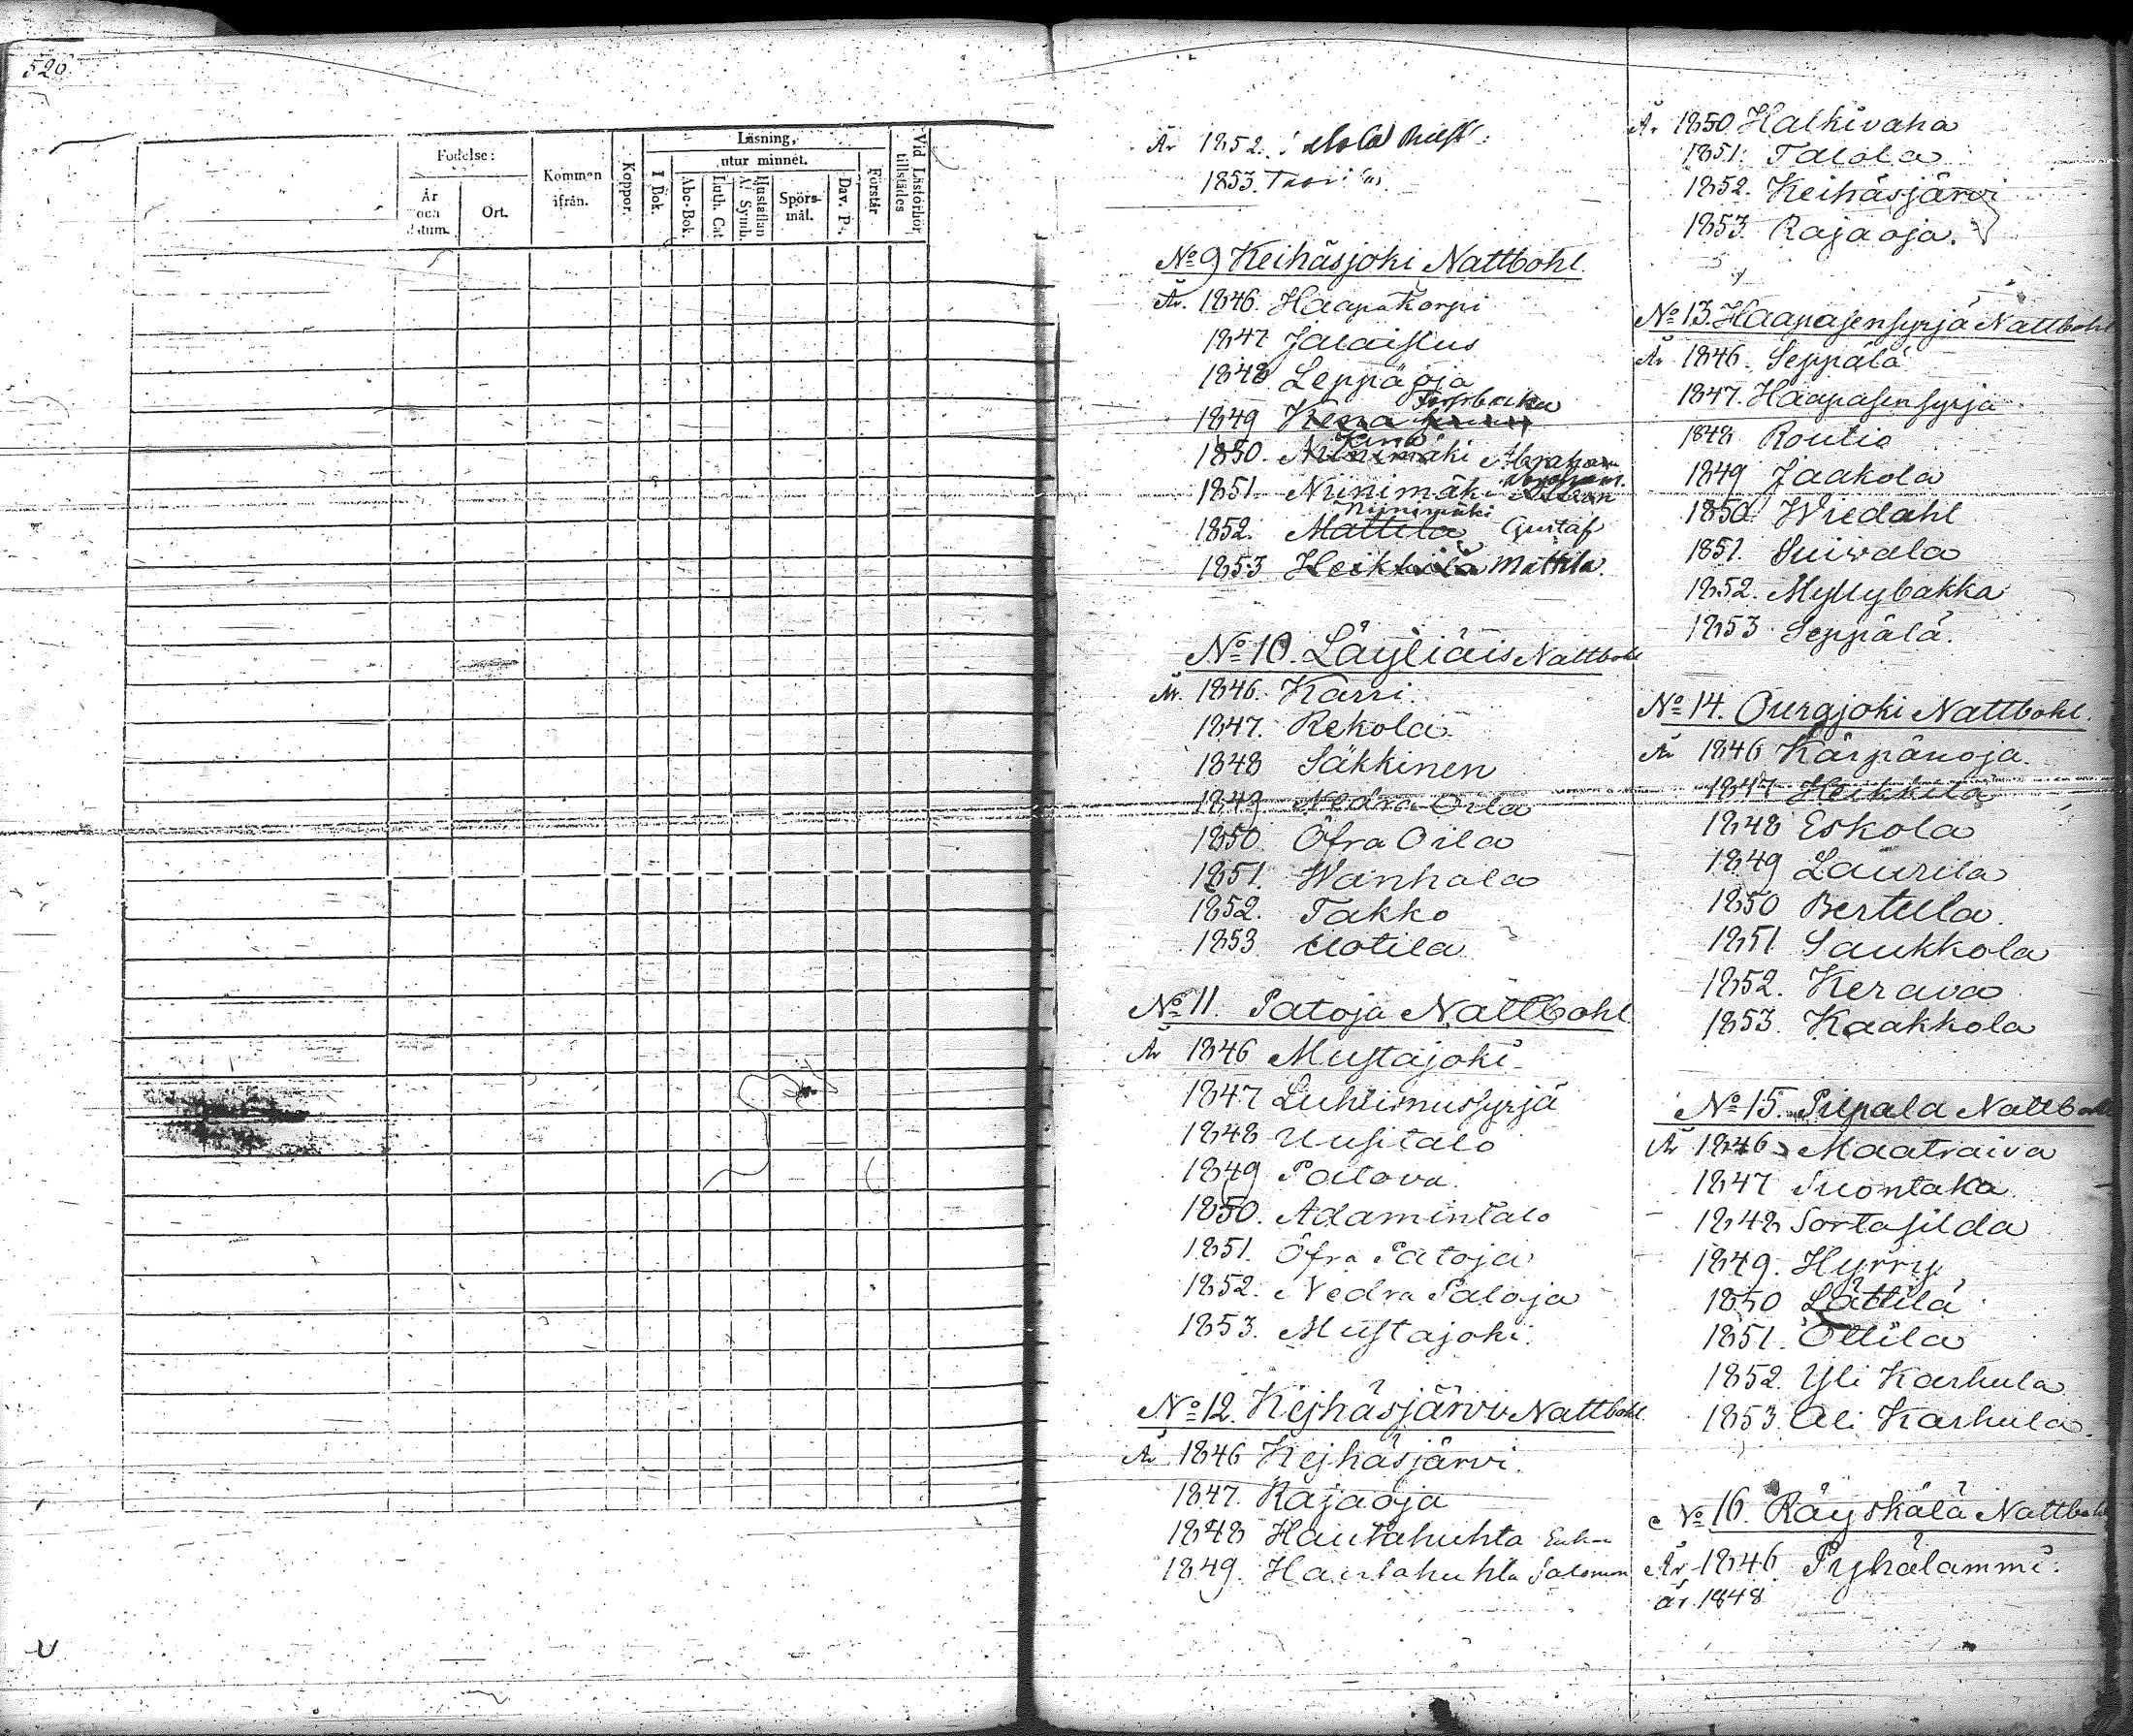 526
Födelse:
År och datum.
Ort.
Kommen ifrån.
Koppor.
Läsning,
I Bok.
utur minnet.
Abc-Bok.
Luth. Cat.
Hustaflan A. Symb.
Spörsmål.
Dav. P.
Förstår
Vid Läsförhör tillstädes
År 1852.
1853.
No 9 Keihäsjoki Nattbohl.
År. 1846. Haapakorpi
1847 Jalaistus
1848 Leppäoja
1849 Kena Torfbacka
1850. Kena Niinimäki Abraham
1851. Niinimäki Abraham
1852. Mattila Niinimäki Gustaf
1853 Heikkilä Mattila.
No 10. Läyliäis Nattbohl
År. 1846. Karri.
1847. Rekola
1848 Säkkinen
1849 Nedra Oila
1850. Öfra Oila
1851. Wanhala
1852. Takko
1853 Uotila
No 11. Patoja Nattbohl.
År 1846 Mustajoki
1847 Luhtimussyrjä
1848 Uusitalo
1849 Palova.
1850. Adamintalo
1851. Öfra Patoja
1852. Nedra Patoja
1853. Mustajoki.
No 12. Kejhäsjärvi Nattbohl.
År 1846 Kejhäsjärvi.
1847. Rajaoja
1848 Hautahuhta
1849. Hautahuhta Salomon
År 1850. Halkivaha
1851. Talola
1852. Keihäsjärvi
1853. Rajaoja.
No 13. Haapasensyrjä Nattbohl
År 1846. Seppälä
1847. Haapasensyrjä
1848 Routio
1849 Jaakola
1850. Wiedahl
1851. Suivala
1852. Myllybakka
1853 Seppälä.
No 14. Ourajoki Nattbohl.
År 1846 Kärpänoja.
1847 Heikkilä
1848 Eskola
1849 Laurila
1850 Bertula
1851 Saukkola
1852. Kerava
1853. Kaakkola
No 15. Pilpala Nattbohl
År 1846 Maatraiva
1847 Suontaka
1848 Sortasilda
1849. Hyrry.
1850 Lättilä
1851. Ottila
1852. Yli Karhula
1853. Ali Karhula.
No 16. Räyskälä Nattbohl
År 1846. Pyhälammi.
år 1848